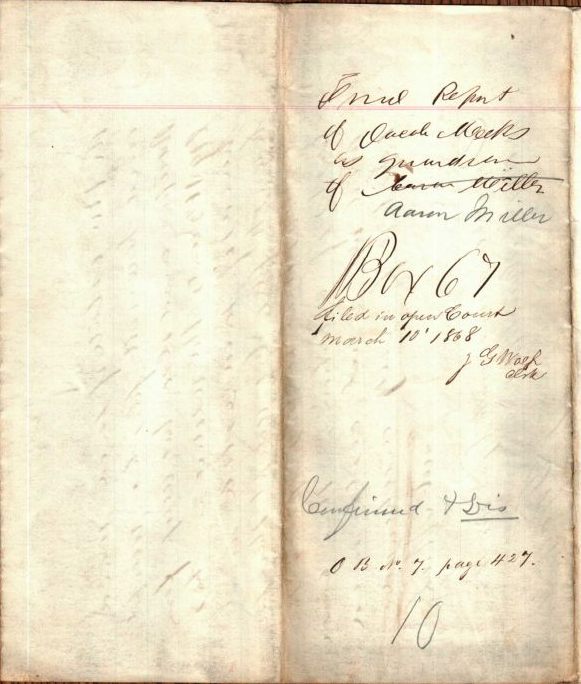 Final Report
of Jacob Meeks
as guardian
of Aaron Miller
Aaron Miller
Box 67
filed in open Court
March 10' 1868
J G Wolf
Clk
Confirmed & Dis
O B No. 7. page 427.
10